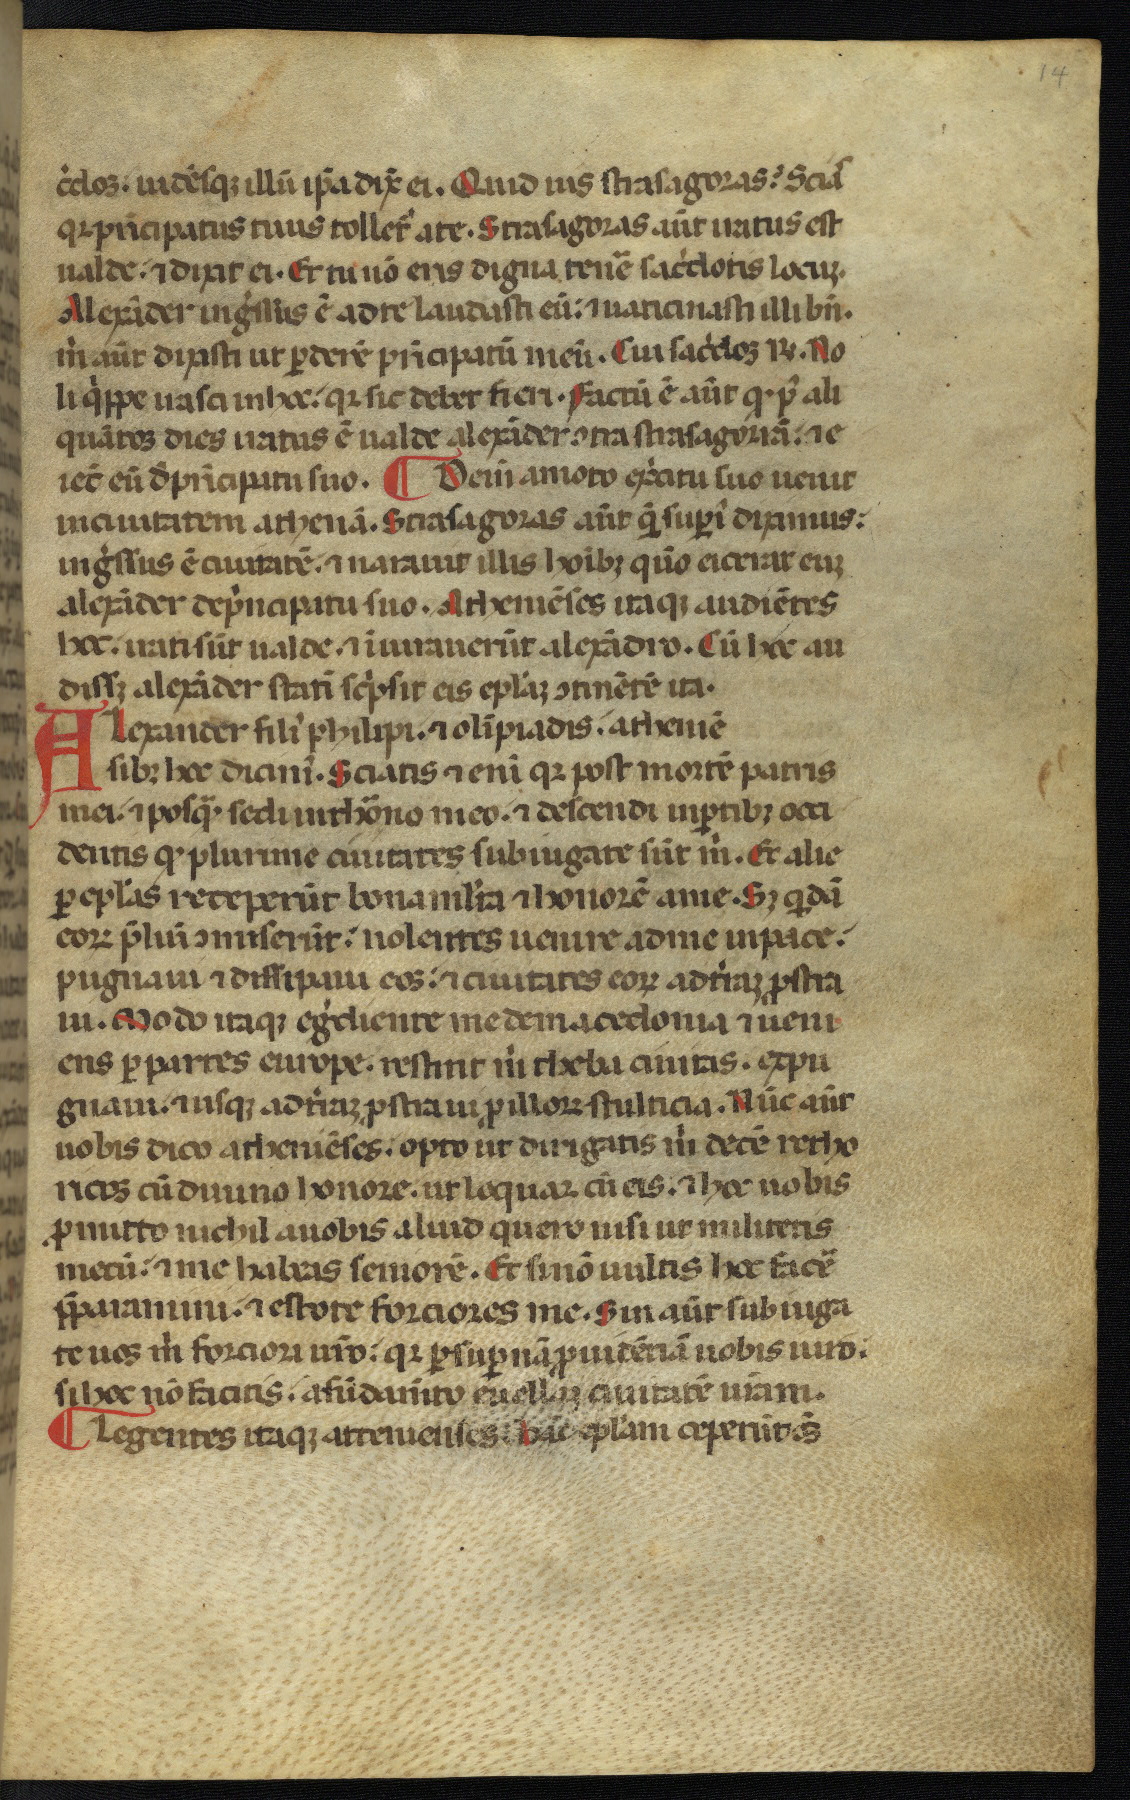 14
c̄dos. uidēsq; illū ip̄a dix̄ ei. Quid uis strasagoras? Scias
qr p̄ncipatus tuus tollet᷑ a te. Strasagoras aūt iratus est
ualde. ⁊ dixit ei. Et tu nō eris digna tenē sac̄dotis locuꝫ.
Alexāder inḡssus ē ad te laudasti eū. ⁊ uaticinasti illi bn̄.
m̄ aūt dixisti ut ꝑderē p̄ncipatū meū. Cui sac̄dos R. No
li q̄ppe irasci in hoc. qr sic debet fieri. Factū ē aūt q p᷒ ali
quātos dies iratus ē ualde alexāder ꝯtra strasagorā. ⁊ e
iec̄ eū d̄ p̄ncipatu suo. ¶ Dein̄ amoto ex̄citu suo uenit
in ciuitatem athenā. Strasagoras aūt q̄ suꝑi᷒ diximus.
inḡssus ē ciuitatē. ⁊ narauit illis hoīb; quō eicerat eū
alexāder de p̄ncipatu suo. Atheniēses itaq; audiētes
hec. irati sūt ualde. ⁊ iniurauerūt alexādro. Cū hec au
diss; alexāder stati sc̄psit eis epl̄aꝫ ꝯtinētē ita.
Alexander fili᷒ philipi. ⁊ olīpiadis. atheniē
sib; hec dicim᷒. Sciatis ⁊ eni qr post mortē patris
mei. ⁊ posq̄ sedi in thono meo. ⁊ descendi in ꝑtib; occi
dentis q plurime ciuitates subiugate sūt m̄. Et alie
ꝑ epl̄as receperūt bona ml̄ta ⁊ honorē a me. S; q̄dā
eoꝝ p̄liū ꝯmiserūt. nolentes uenire ad me in pace.
pugnaui ⁊ dissipaui eos. ⁊ ciuitates eoꝝ ad t̄raꝫ ꝓstra
ui. Modo itaq; eḡdiente me de macedonia ⁊ ueni
ens ꝑ partes europe. restitit m̄ theba ciuitas. expu
gnaui. ⁊ usq; ad t̄raꝫ ꝓstraui ꝓ illoꝝ stulticia. Nūc aūt
uobis dico atheniēses. opto ut dirigatis m̄ decē retho
ricos cū diuino honore. ut loquar cū eis. ⁊ hec uobis
ꝓmitto nichil a uobis aliud quero nisi ut militetis
mecū. ⁊ me habeas seniorē. Et si nō uultis hec facē
p̄paramini. ⁊ estote forciores me. Sin aūt subiuga
te uos m̄ forciori uiro. qr ꝑ suꝑnā ꝓuidētiā uobis iuro.
si hec nō facitis. a fūdam̄to euellaꝫ ciuitatē ur̄am.
¶ Legentes itaq; attenienses hāc epl̄am ceperūt oēs